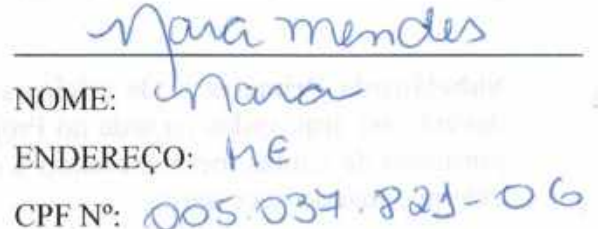 Nara mendes
NOME: Nara
ENDEREÇO: NE
CPF Nº: 005.037.821-06